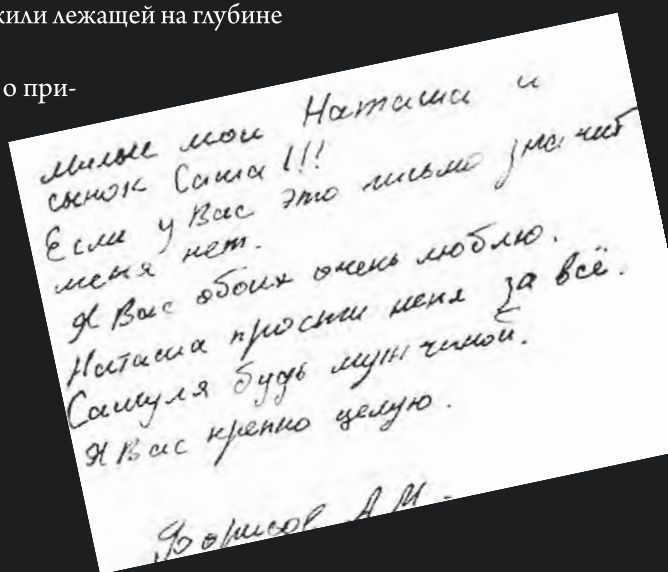 жили лежащей на глубине
о при-
милые мои Наташа и
сынок Саша!!!
Если у Вас это письмо значит
меня нет.
Я Вас обоих очень люблю.
Наташа прости меня за всё.
Сашуля будь мужчиной.
Я Вас крепко целую.
Борисов А.М.